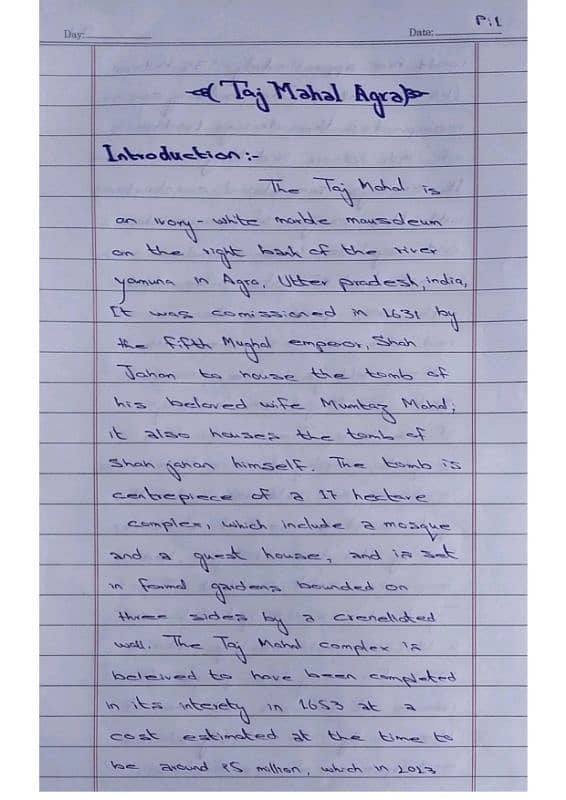 P:1
Day:
Date:
(Taj Mahal Agra)
Introduction:-
The Taj Mahal is
an ivory-white marble mausoleum
on the right bank of the river
yamuna in Agra, Utter pradesh, india,
It was comissioned in 1631 by
the fifth Mughal emperor, Shah
Jahan to house the tomb of
his beloved wife Mumtaz Mahal;
it also houses the tomb of
Shah jahan himself. The tomb is
centrepiece of a 17 hectare
complex, which include a mosque
and a guest house, and is set
in formal gardens bounded on
three sides by a crenellated
wall. The Taj Mahal complex is
beleived to have been completed
in its interety in 1653 at a
cost estimated at the time to
be around ₹5 million, which in 2023